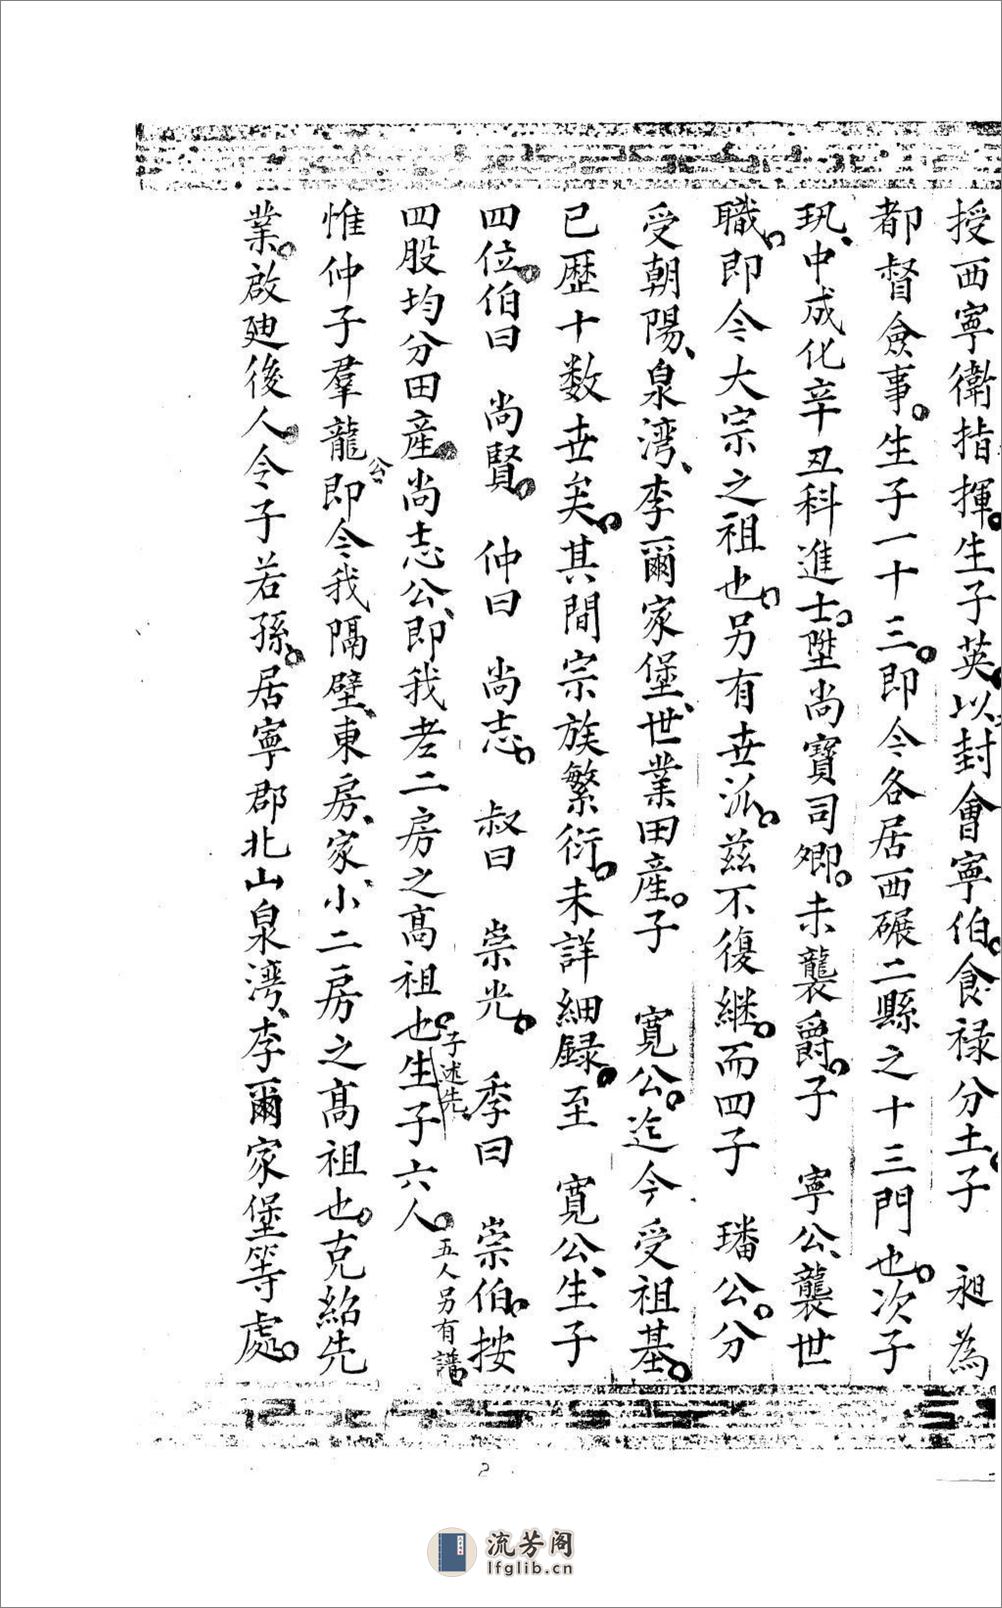 授西寧衛指揮。生子英、以封會寧伯。食祿分土。子　昶為
都督僉事。生子一十三。即今各居西碾二縣之十三門也。次子
玑、中成化辛丑科進士。陞尚寶司卿。未襲爵。子　寧公、襲世
職。即今大宗之祖也。另有世派。茲不復継。而四子　璠公。分
受朝陽、泉湾、李爾家堡、世業田產。子　寬公。迄今受祖基。
已歷十数世矣。其間宗族繁衍。未詳細録。至　寬公、生子
四位。伯曰　尚賢。　仲曰　尚志。　叔曰　崇光。　季曰　崇伯。按
四股均分田產。尚志公、即我老二房之高祖也。子述先。生子六人。五人另有譜。
惟仲子羣龍公即今我隔壁、東房、家、小二房之高祖也。克紹先
業。啟廸後人。今子若孫。居寧郡北山泉湾、李爾家堡等處。
2
流芳阁
lfglib.cn